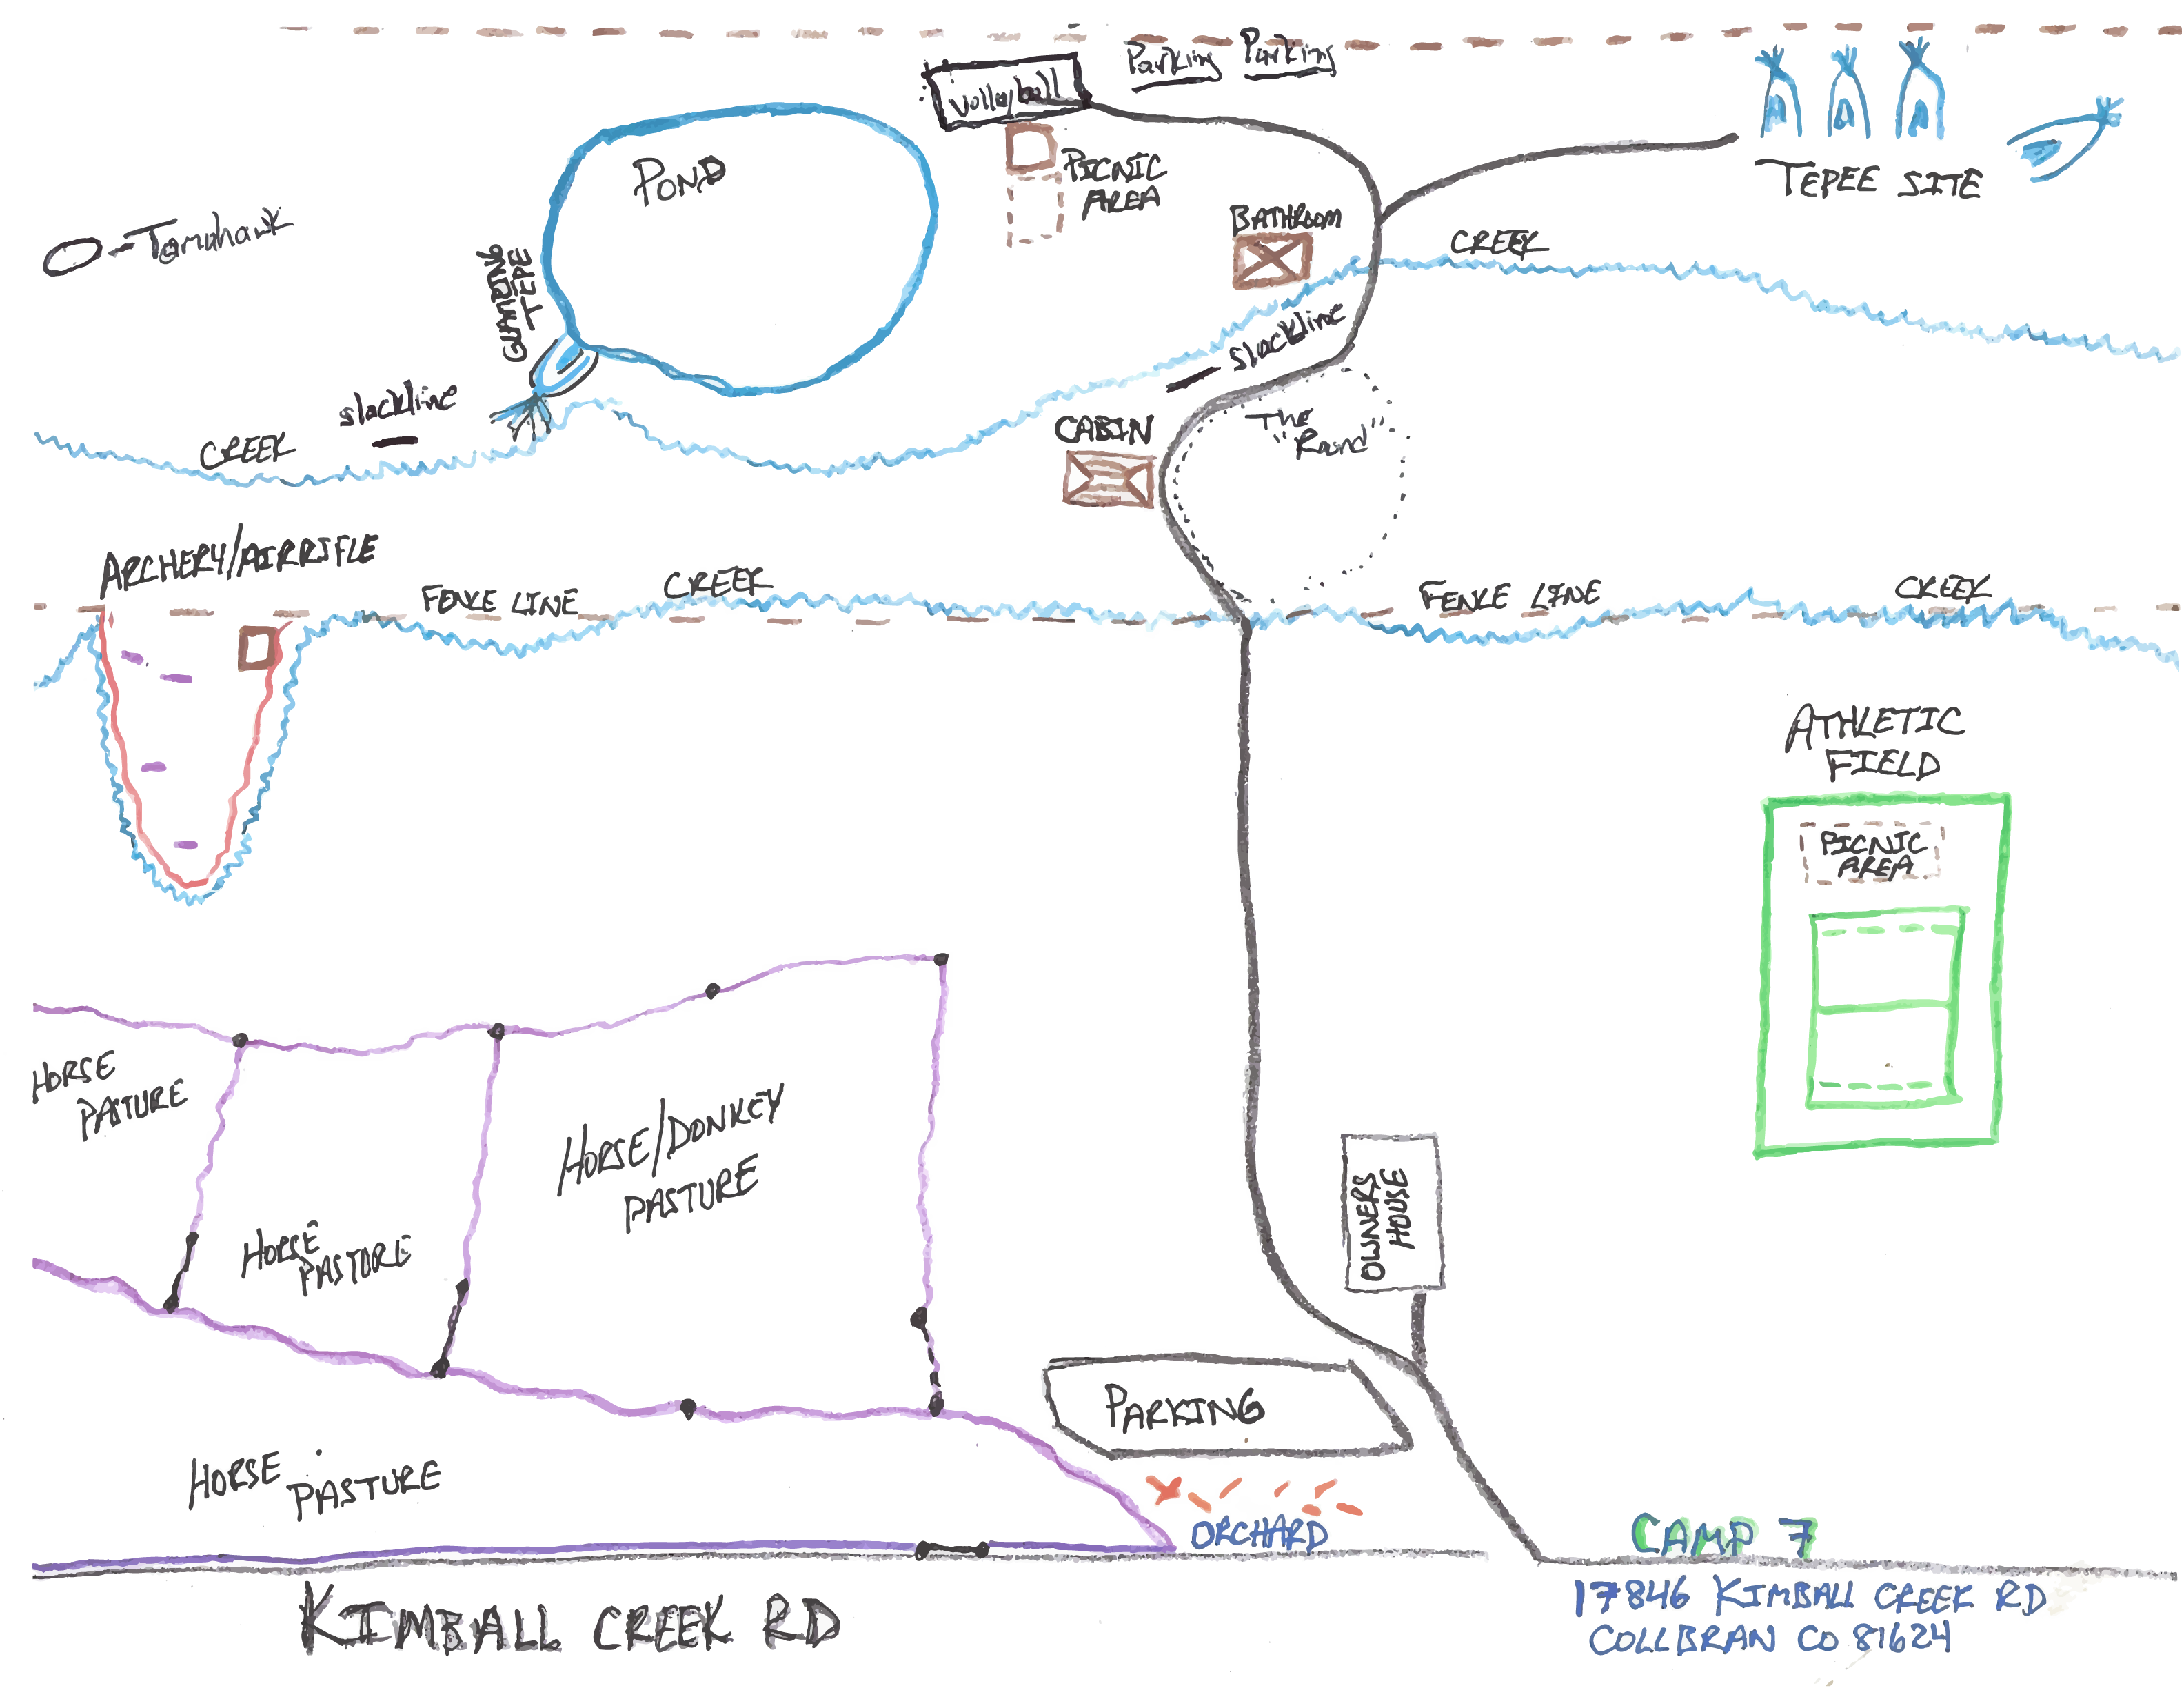 Parking Parking
Volleyball
POND
PICNIC
AREA
TEPEE SITE
Tomahawk
BATHROOM
CREEK
GLAMPING
TEPE
slackline
slackline
CREEK
CABIN
The
"Round"
ARCHERY/AIRRIFLE
FENCE LINE
CREEK
FENCE LINE
CREEK
ATHLETIC
FIELD
PICNIC
AREA
HORSE
PASTURE
HORSE/DONKEY
PASTURE
HORSE
PASTURE
OWNERS
HOUSE
PARKING
HORSE
PASTURE
ORCHARD
CAMP 7
KIMBALL CREEK RD
17846 KIMBALL CREEK RD
COLLBRAN CO 81624